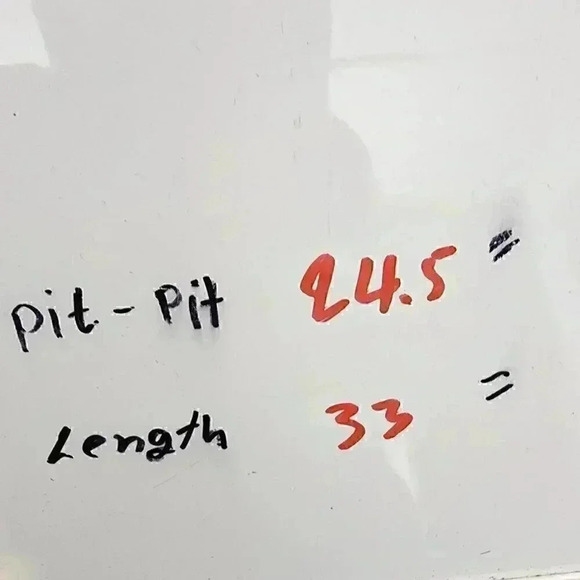 pit - pit 24.5 "
Length 33 "